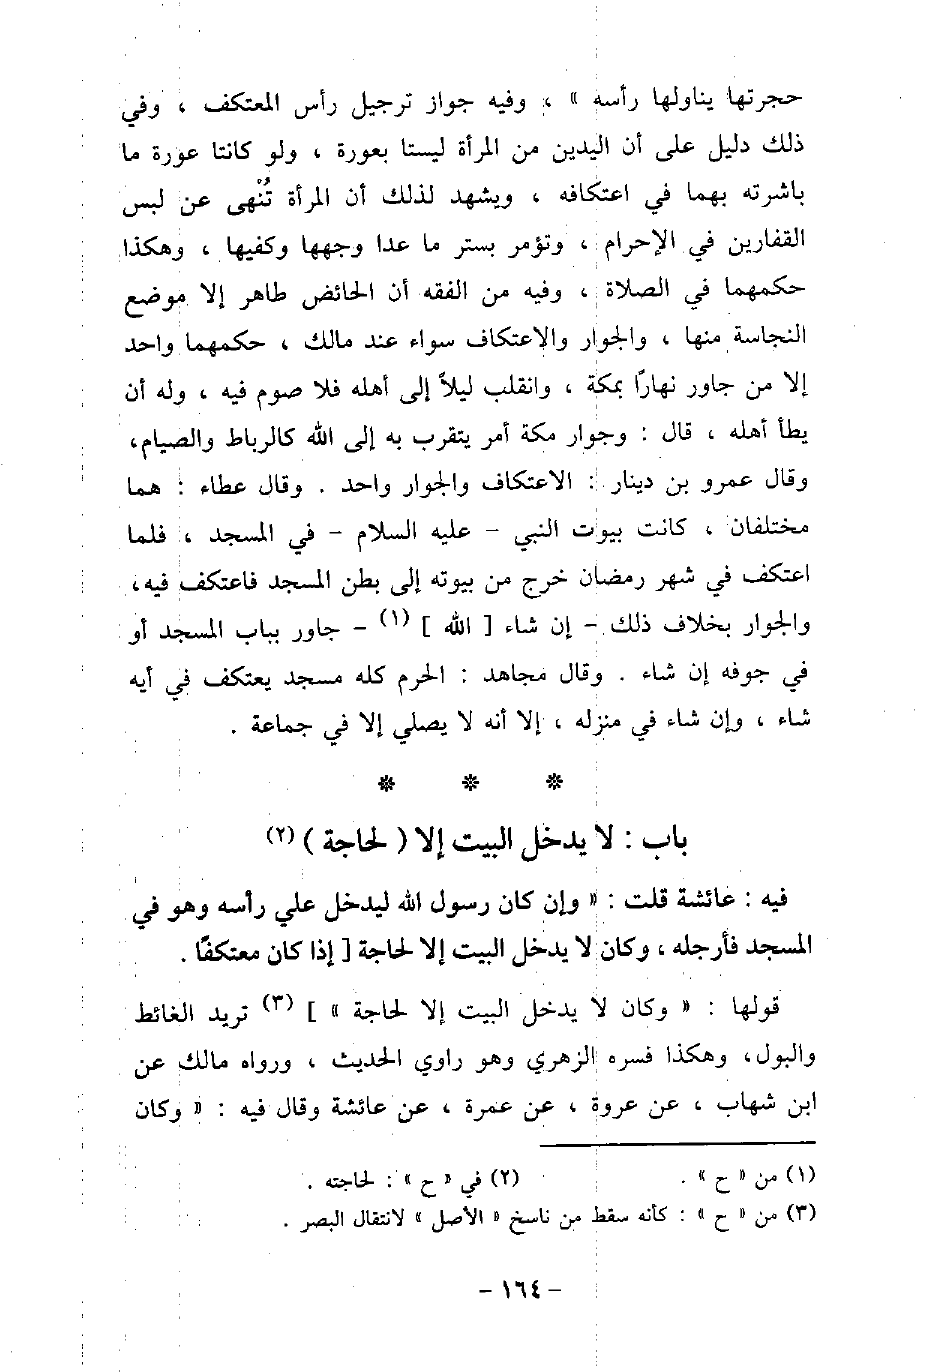 حجرتها يناولها رأسه » ، وفيه جواز ترجيل رأس المعتكف ، وفي
ذلك دليل على أن اليدين من المرأة ليستا بعورة ، ولو كانتا عورة ما
باشرته بهما في اعتكافه ، ويشهد لذلك أن المرأة تُنْهى عن لبس
القفازين في الإحرام ، وتؤمر بستر ما عدا وجهها وكفيها ، وهكذا
حكمهما في الصلاة ، وفيه من الفقه أن الحائض طاهر إلا موضع
النجاسة منها ، والجوار والاعتكاف سواء عند مالك ، حكمهما واحد
إلا من جاور نهارًا بمكة ، وانقلب ليلاً إلى أهله فلا صوم فيه ، وله أن
يطأ أهله ، قال : وجوار مكة أمر يتقرب به إلى الله كالرباط والصيام،
وقال عمرو بن دينار : الاعتكاف والجوار واحد . وقال عطاء : هما
مختلفان ، كانت بيوت النبي - عليه السلام - في المسجد ، فلما
اعتكف في شهر رمضان خرج من بيوته إلى بطن المسجد فاعتكف فيه،
والجوار بخلاف ذلك - إن شاء [ الله ] (١) - جاور بباب المسجد أو
في جوفه إن شاء . وقال مجاهد : الحرم كله مسجد يعتكف في أيه
شاء ، وإن شاء في منزله ، إلا أنه لا يصلي إلا في جماعة .
* * *
باب : لا يدخل البيت إلا ( لحاجة ) (٢)
فيه : عائشة قلت : « وإن كان رسول الله ليدخل علي رأسه وهو في
المسجد فأرجله ، وكان لا يدخل البيت إلا لحاجة [ إذا كان معتكفًا .
قولها : « وكان لا يدخل البيت إلا لحاجة » ] (٣) تريد الغائط
والبول، وهكذا فسره الزهري وهو راوي الحديث ، ورواه مالك عن
ابن شهاب ، عن عروة ، عن عمرة ، عن عائشة وقال فيه : « وكان
(١) من « ح » . (٢) في « ح » : لحاجته .
(٣) من « ح » : كأنه سقط من ناسخ « الأصل » لانتقال البصر .
- ١٦٤ -